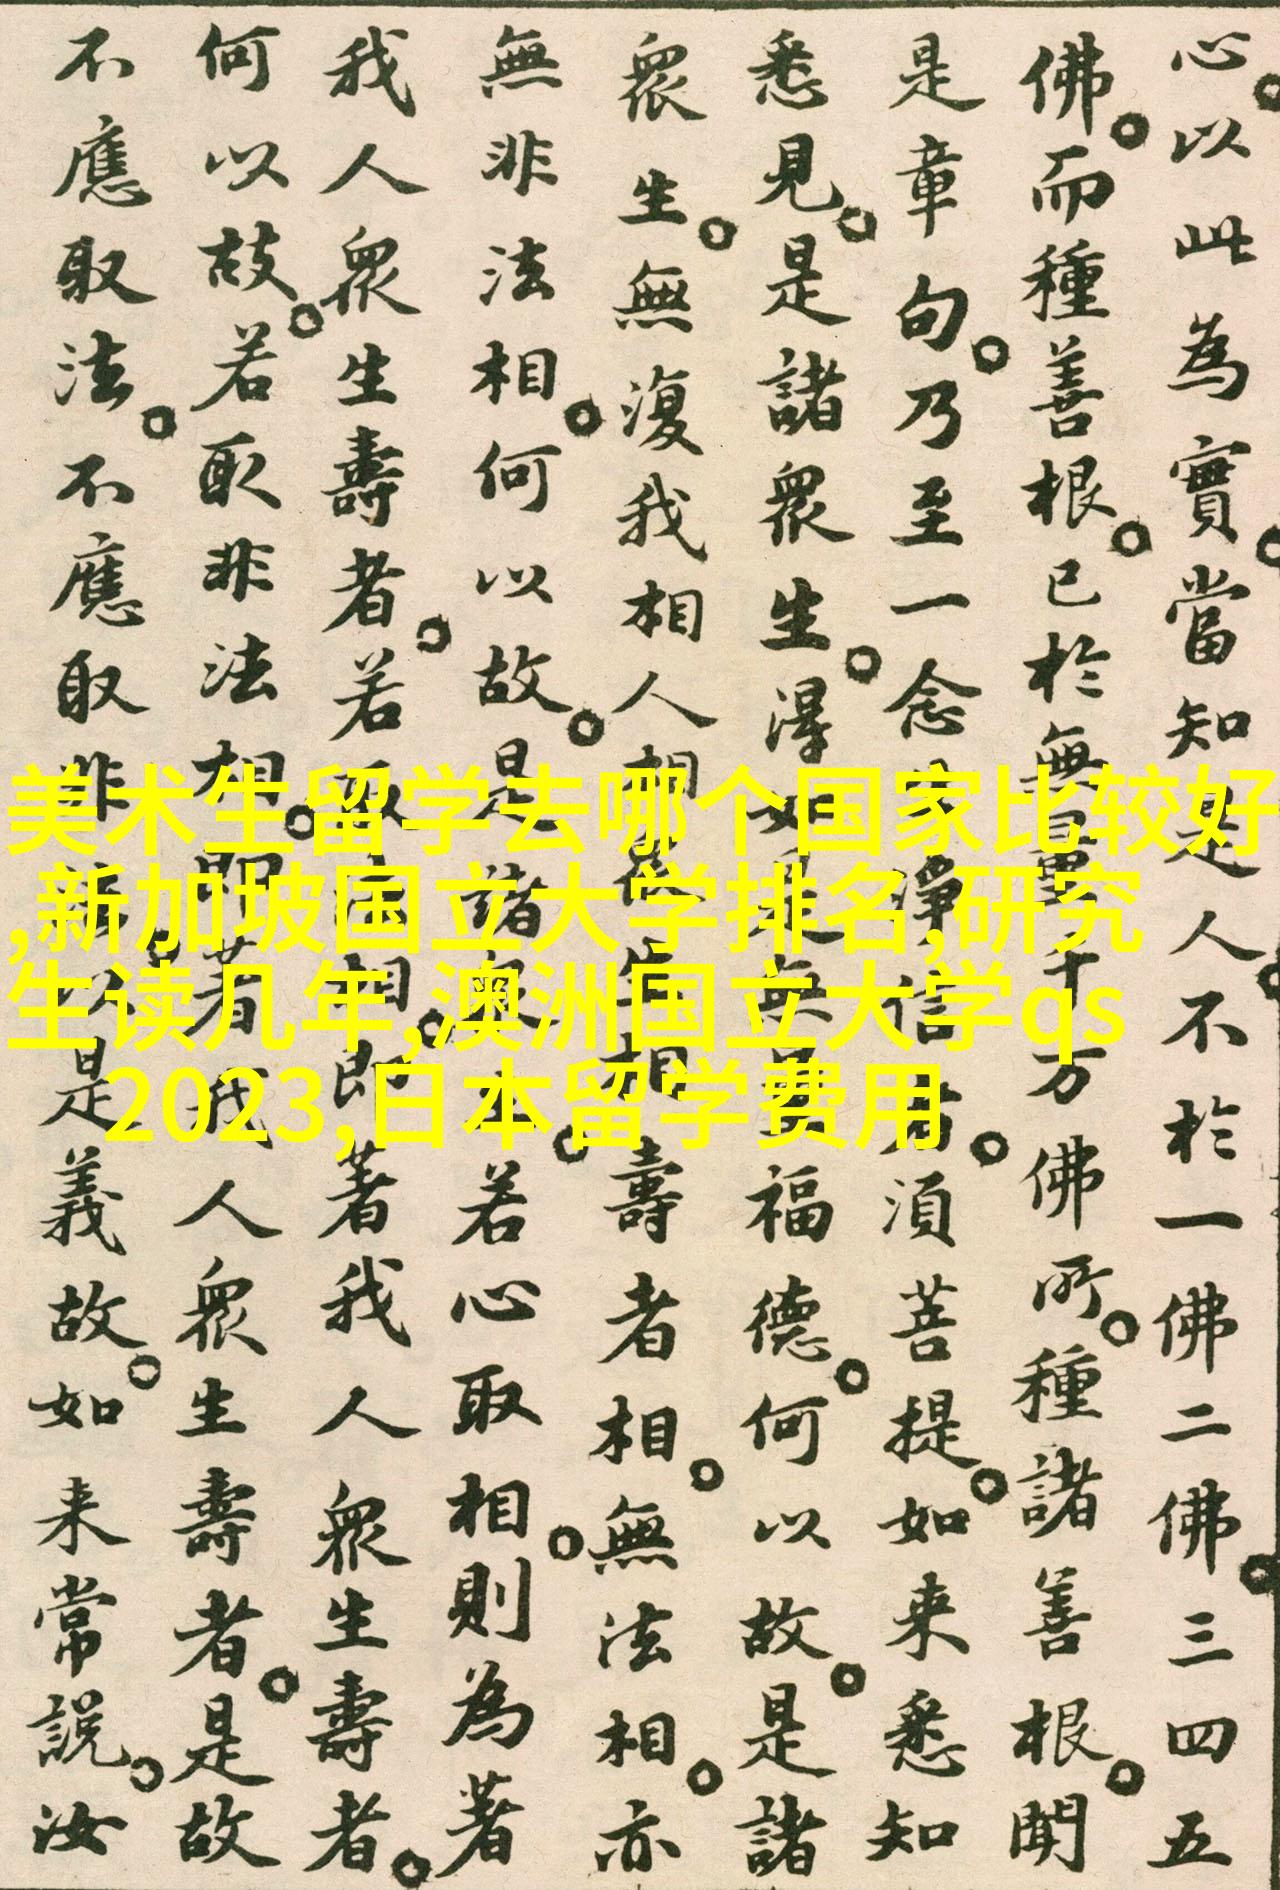 心。以此為實。當知是人。不於一佛二佛。三四五
佛。而種善根。已於無量千万佛所。種諸善根。聞
是章句。乃至一念生淨信者。須菩提。如来悉知
悉見。是諸眾生。得如是無量福德。何以故。是諸
眾生。無復我相人相眾生相。壽者相。無法相。亦
無非法相。何以故。是諸眾生。若心取相。則為著
我人眾生壽者。若取法相。即著我人眾生壽者。
何以故。若取非法相。即著我人眾生壽者。是故
不應取法。不應取非法。以是義故。如来常說。汝
美术生留学去哪个国家比较好
,新加坡国立大学排名,研究
生读几年,澳洲国立大学qs
2023,日本留学费用